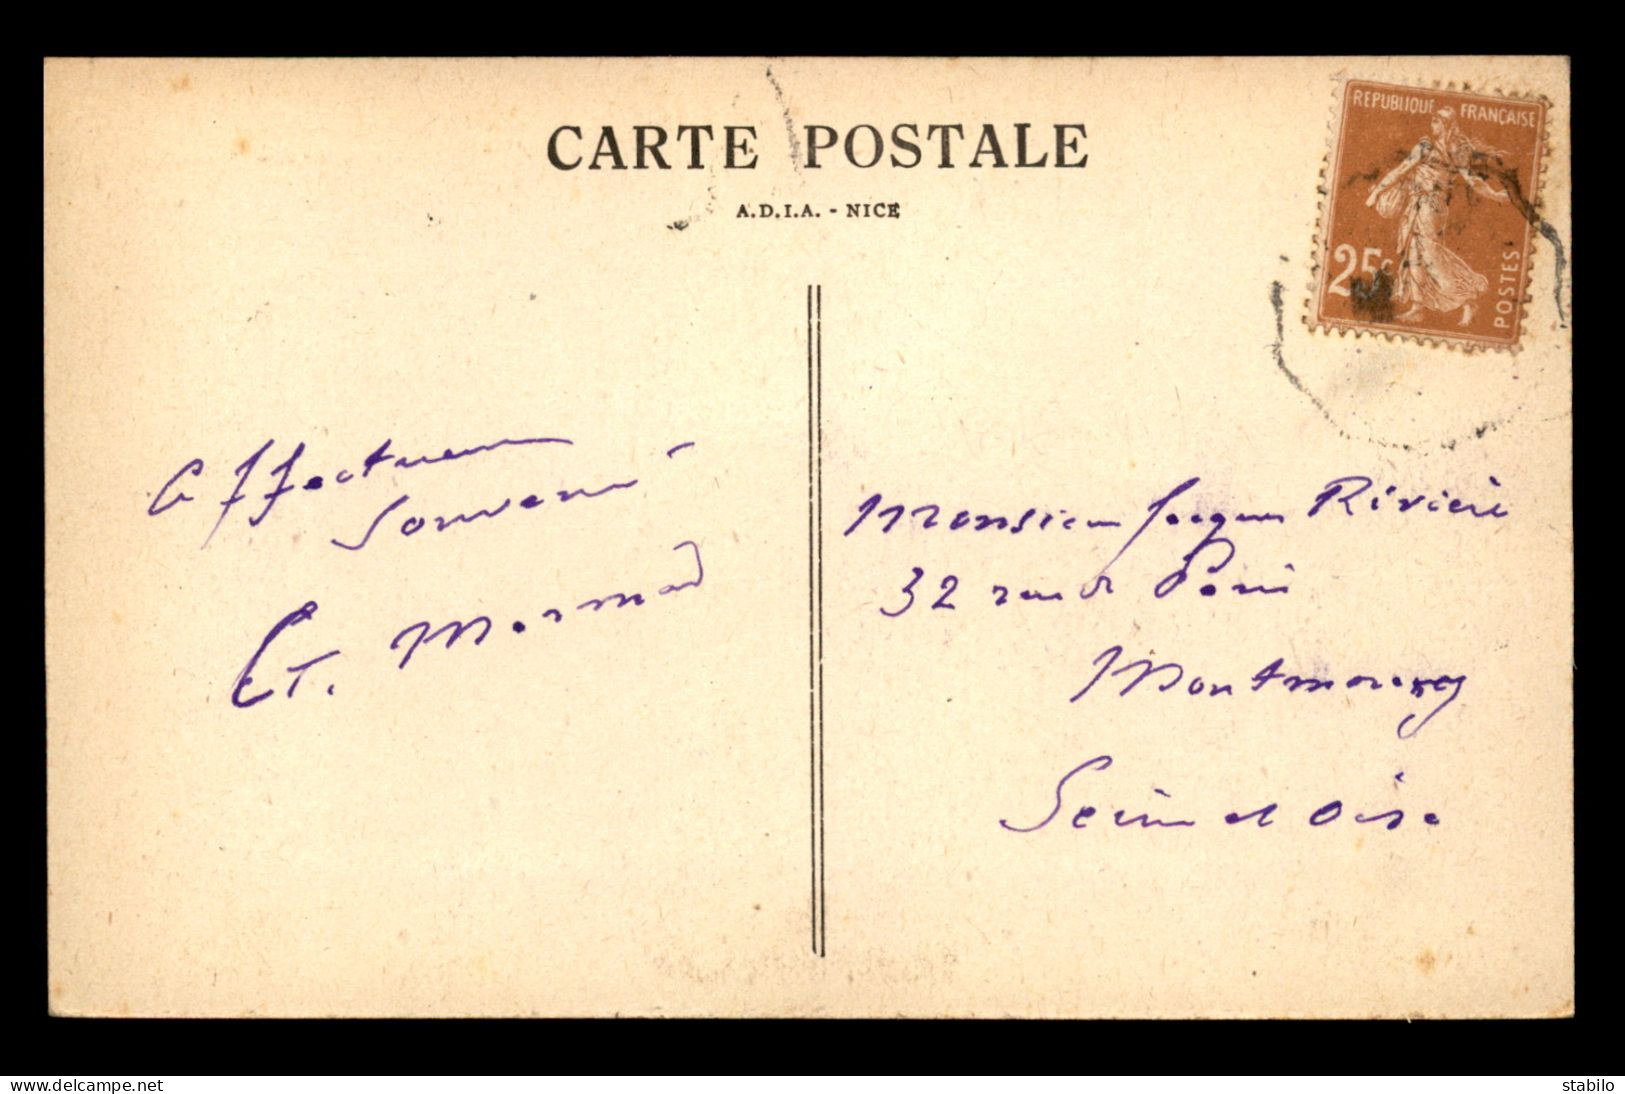 CARTE POSTALE
A.D.I.A. - NICE
REPUBLIQUE FRANÇAISE
25c
POSTES
Affectueux
Souvenir
Monsieur Jacques Rivière
32 rue de Paris
Montmorency
Seine et Oise
www.delcampe.net
stabilo